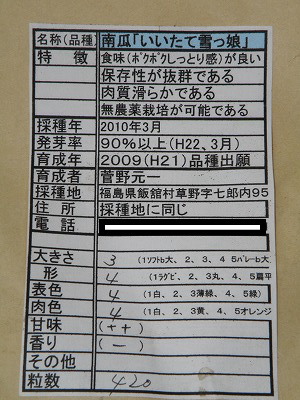 名称(品種) 南瓜「いいたて雪っ娘」
特徴 食味(ポクポクしっとり感)が良い
保存性が抜群である
肉質滑らかである
無農薬栽培が可能である
採種年 2010年3月
発芽率 90%以上(H22、3月)
育成年 2009(H21)品種出願
育成者 菅野元一
採種地 福島県飯舘村草野字七郎内95
住所 採種地に同じ
電話
大きさ 3 (1ソフトb大、2、3、4 5バレーb大)
形 4 (1ラグビ、2、3丸、4、5扁平)
表色 4 (1白、2、3薄緑、4、5緑)
肉色 4 (1白、2、3黄、4、5オレンジ
甘味 (++)
香り (－)
その他
粒数 420